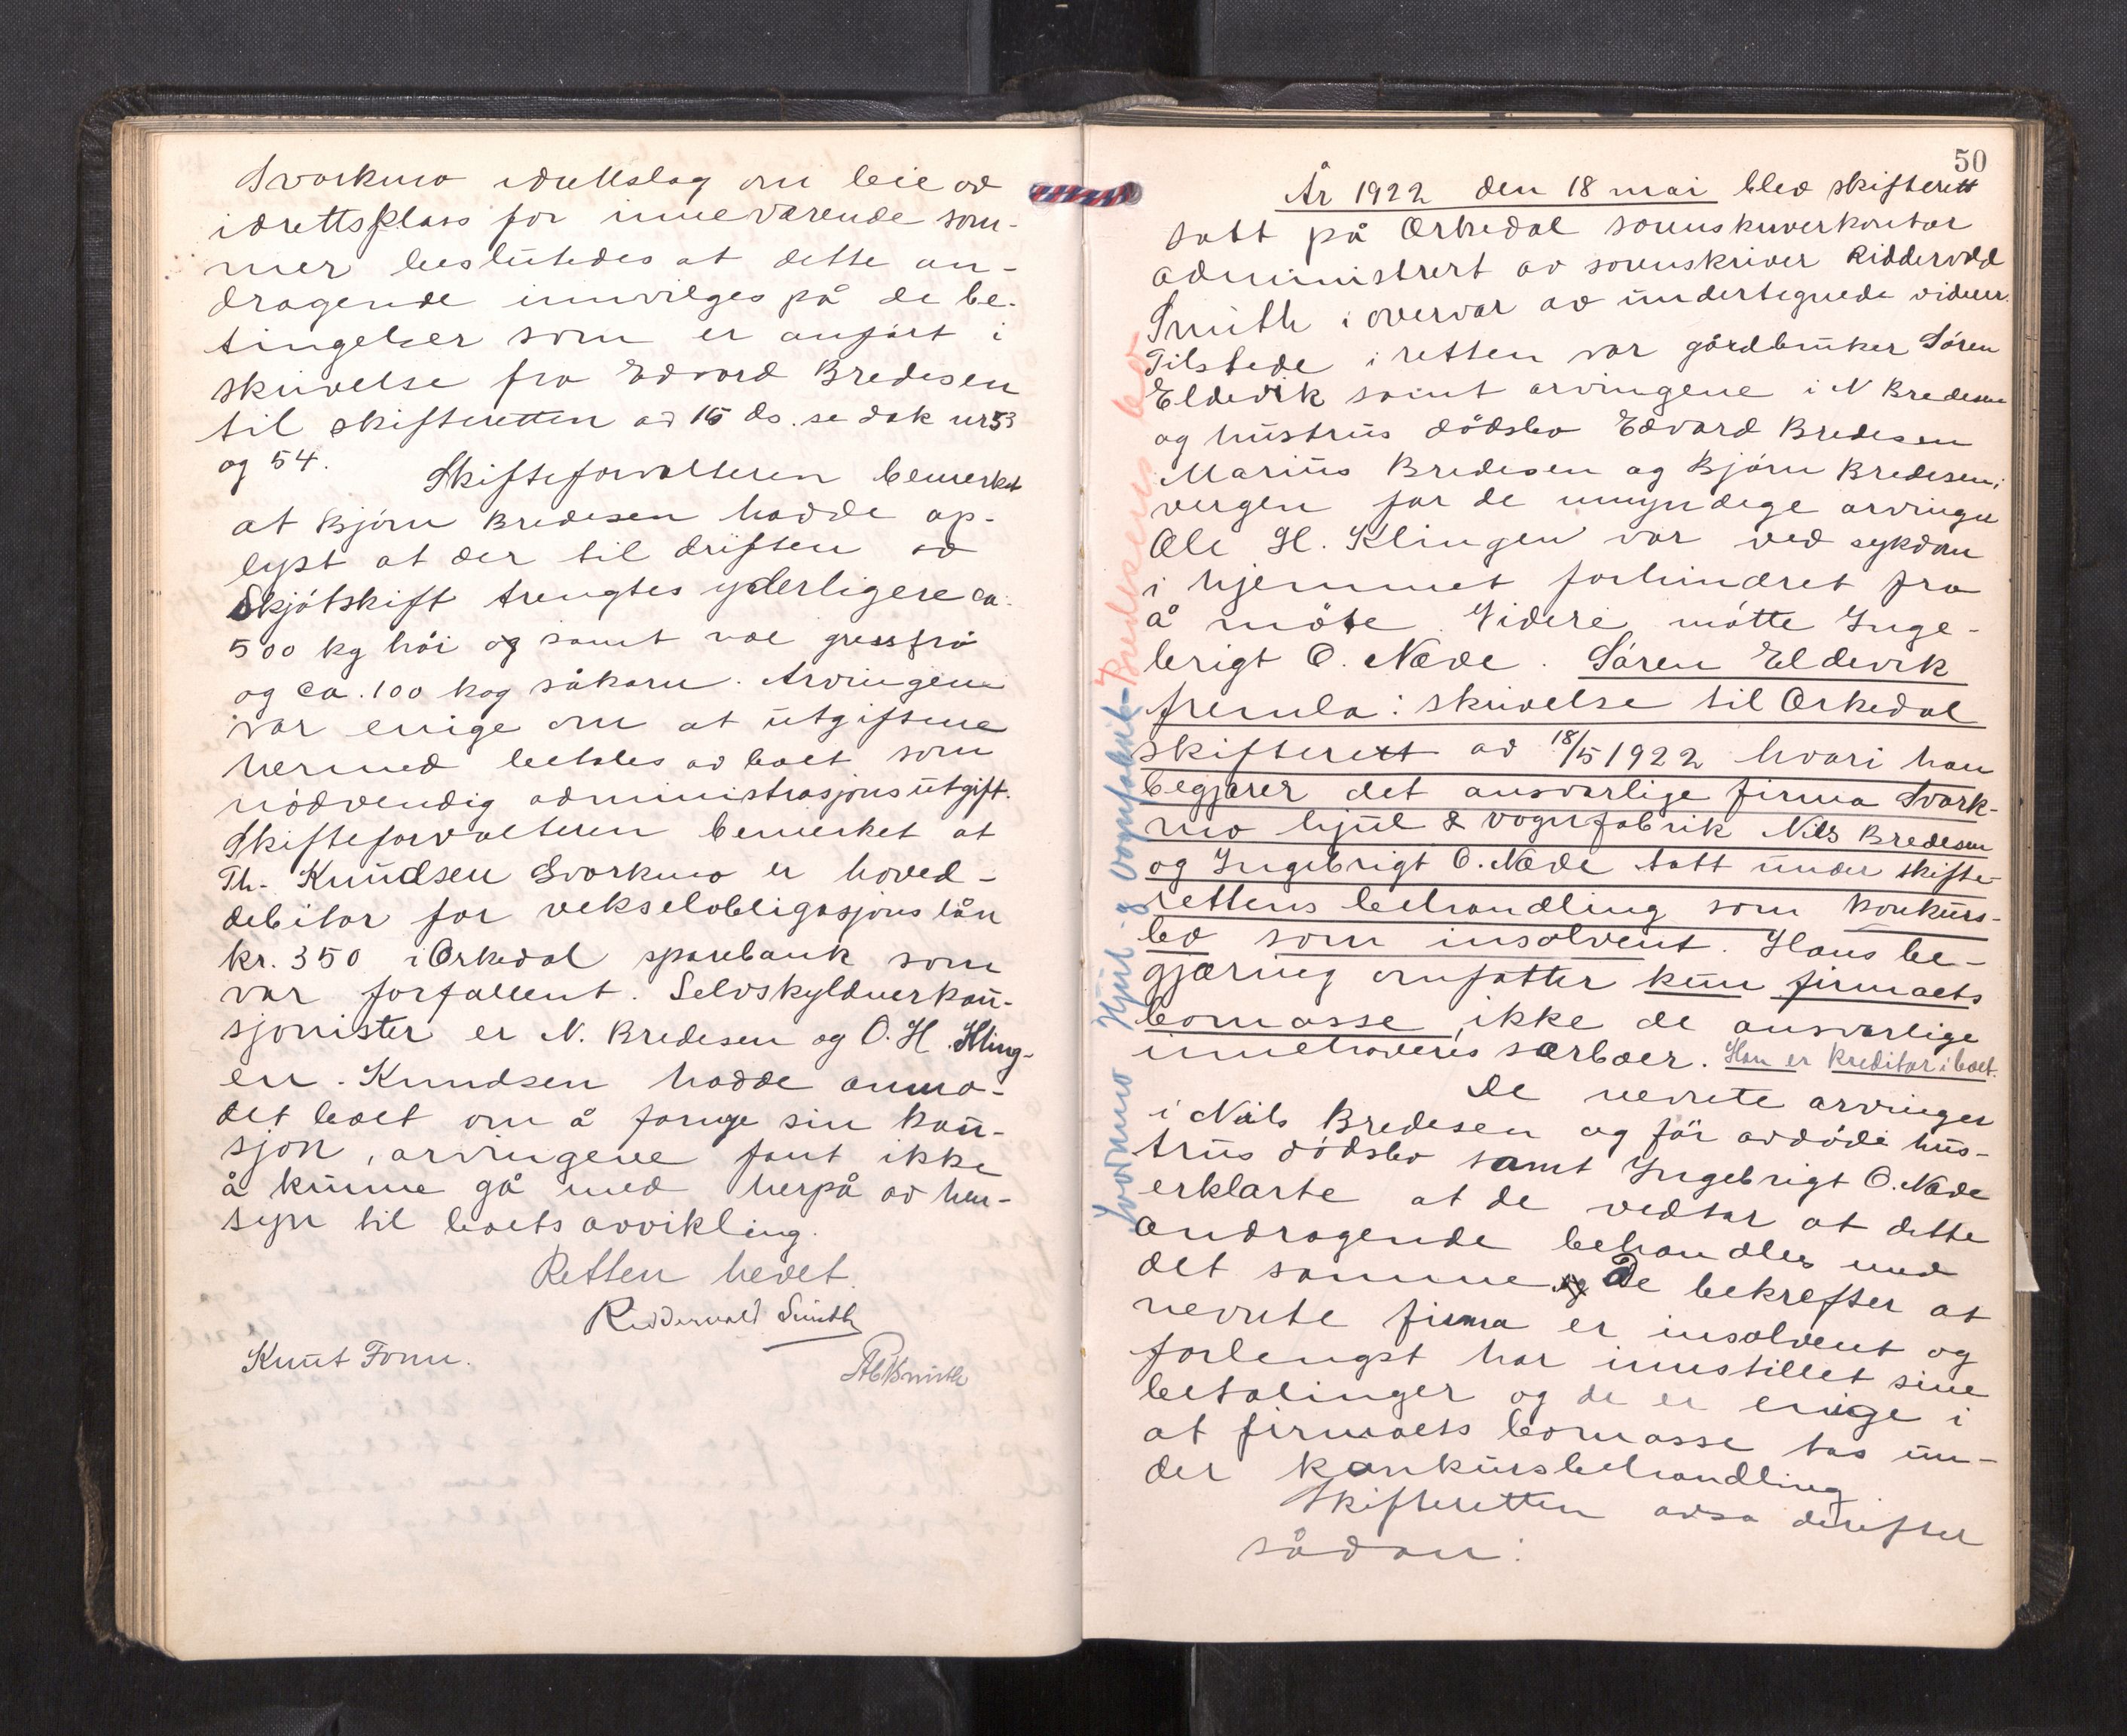 Svorkmo idrettslag om leie av
idrettsplass for inneværende som-
mer beslutedes at dette an-
dragende innvilges på de be-
tingelser som er anført i
skrivelse fra Edvard Bredesen
til skifteretten av 15 ds. se dok nr 53
og 54.
Skifteforvalteren bemerket
at Bjørn Bredesen hadde op-
lyst at der til driften av
Skjøtskift trengtes yderligere ca.
500 kg høi og samt noe gressfrø
og ca. 100 kg såkorn. Arvingene
var enige om at utgiftene
hermed betales av boet som
nødvendig administrasjonsutgift.
Skifteforvalteren bemerket at
Th. Knudsen Svorkmo er hoved-
debitor for vekselobligasjonslån
kr. 350 i Orkedal sparebank som
var forfallent. Selvskyldnerkau-
sjonister er N. Bredesen og O. H. Kling-
en. Knudsen hadde anmo-
det boet om å fornye sin kau-
sjon, arvingene fant ikke
å kunne gå med herpå av hen-
syn til boets avvikling.
Retten hevet.
Riddervold Smith
Knut Fonn.
50
År 1922 den 18 mai blev skifterett
satt på Orkedal sorenskriverkontor
administrert av sorenskriver Riddervold
Smith i overvær av undertegnede vidner.
Tilstede i retten var gårdbruker Søren
Eldevik samt arvingene i N Bredesen
og hustrus dødsbo Edvard Bredesen
Marius Bredesen og Bjørn Bredesen;
vergen for de umyndige arvinger
Ole H. Klingen var ved sykdom
i hjemmet forhindret fra
å møte. Videre møtte Inge-
brigt O. Næve. Søren Eldevik
fremla: skrivelse til Orkedal
skifterett av 18/5 1922 hvori han
begjærer det ansvarlige firma Svork-
mo hjul & vognfabrik Nils Bredesen
og Ingebrigt O. Næve tatt under skifte-
rettens behandling som konkurs-
bo som insolvent. Hans be-
gjæring omfatter kun firmaets
bomasse, ikke de ansvarlige
innehaveres særboer. Han er kreditor i boet.
De nevnte arvinger
i Nils Bredesen og før avdøde hus-
trus dødsbo samt Ingebrigt O. Næve
erklærte at de vedtar at dette
andragende behandles med
det samme og De bekrefter at
nevnte firma er insolvent og
forlengst har innstillet sine
betalinger og de er enige i
at firmaets bomasse tas un-
der konkursbehandling
Skifteretten avsa derefter
sådan:
Svorkmo Hjul- & vognfabrik - Bredesens bo